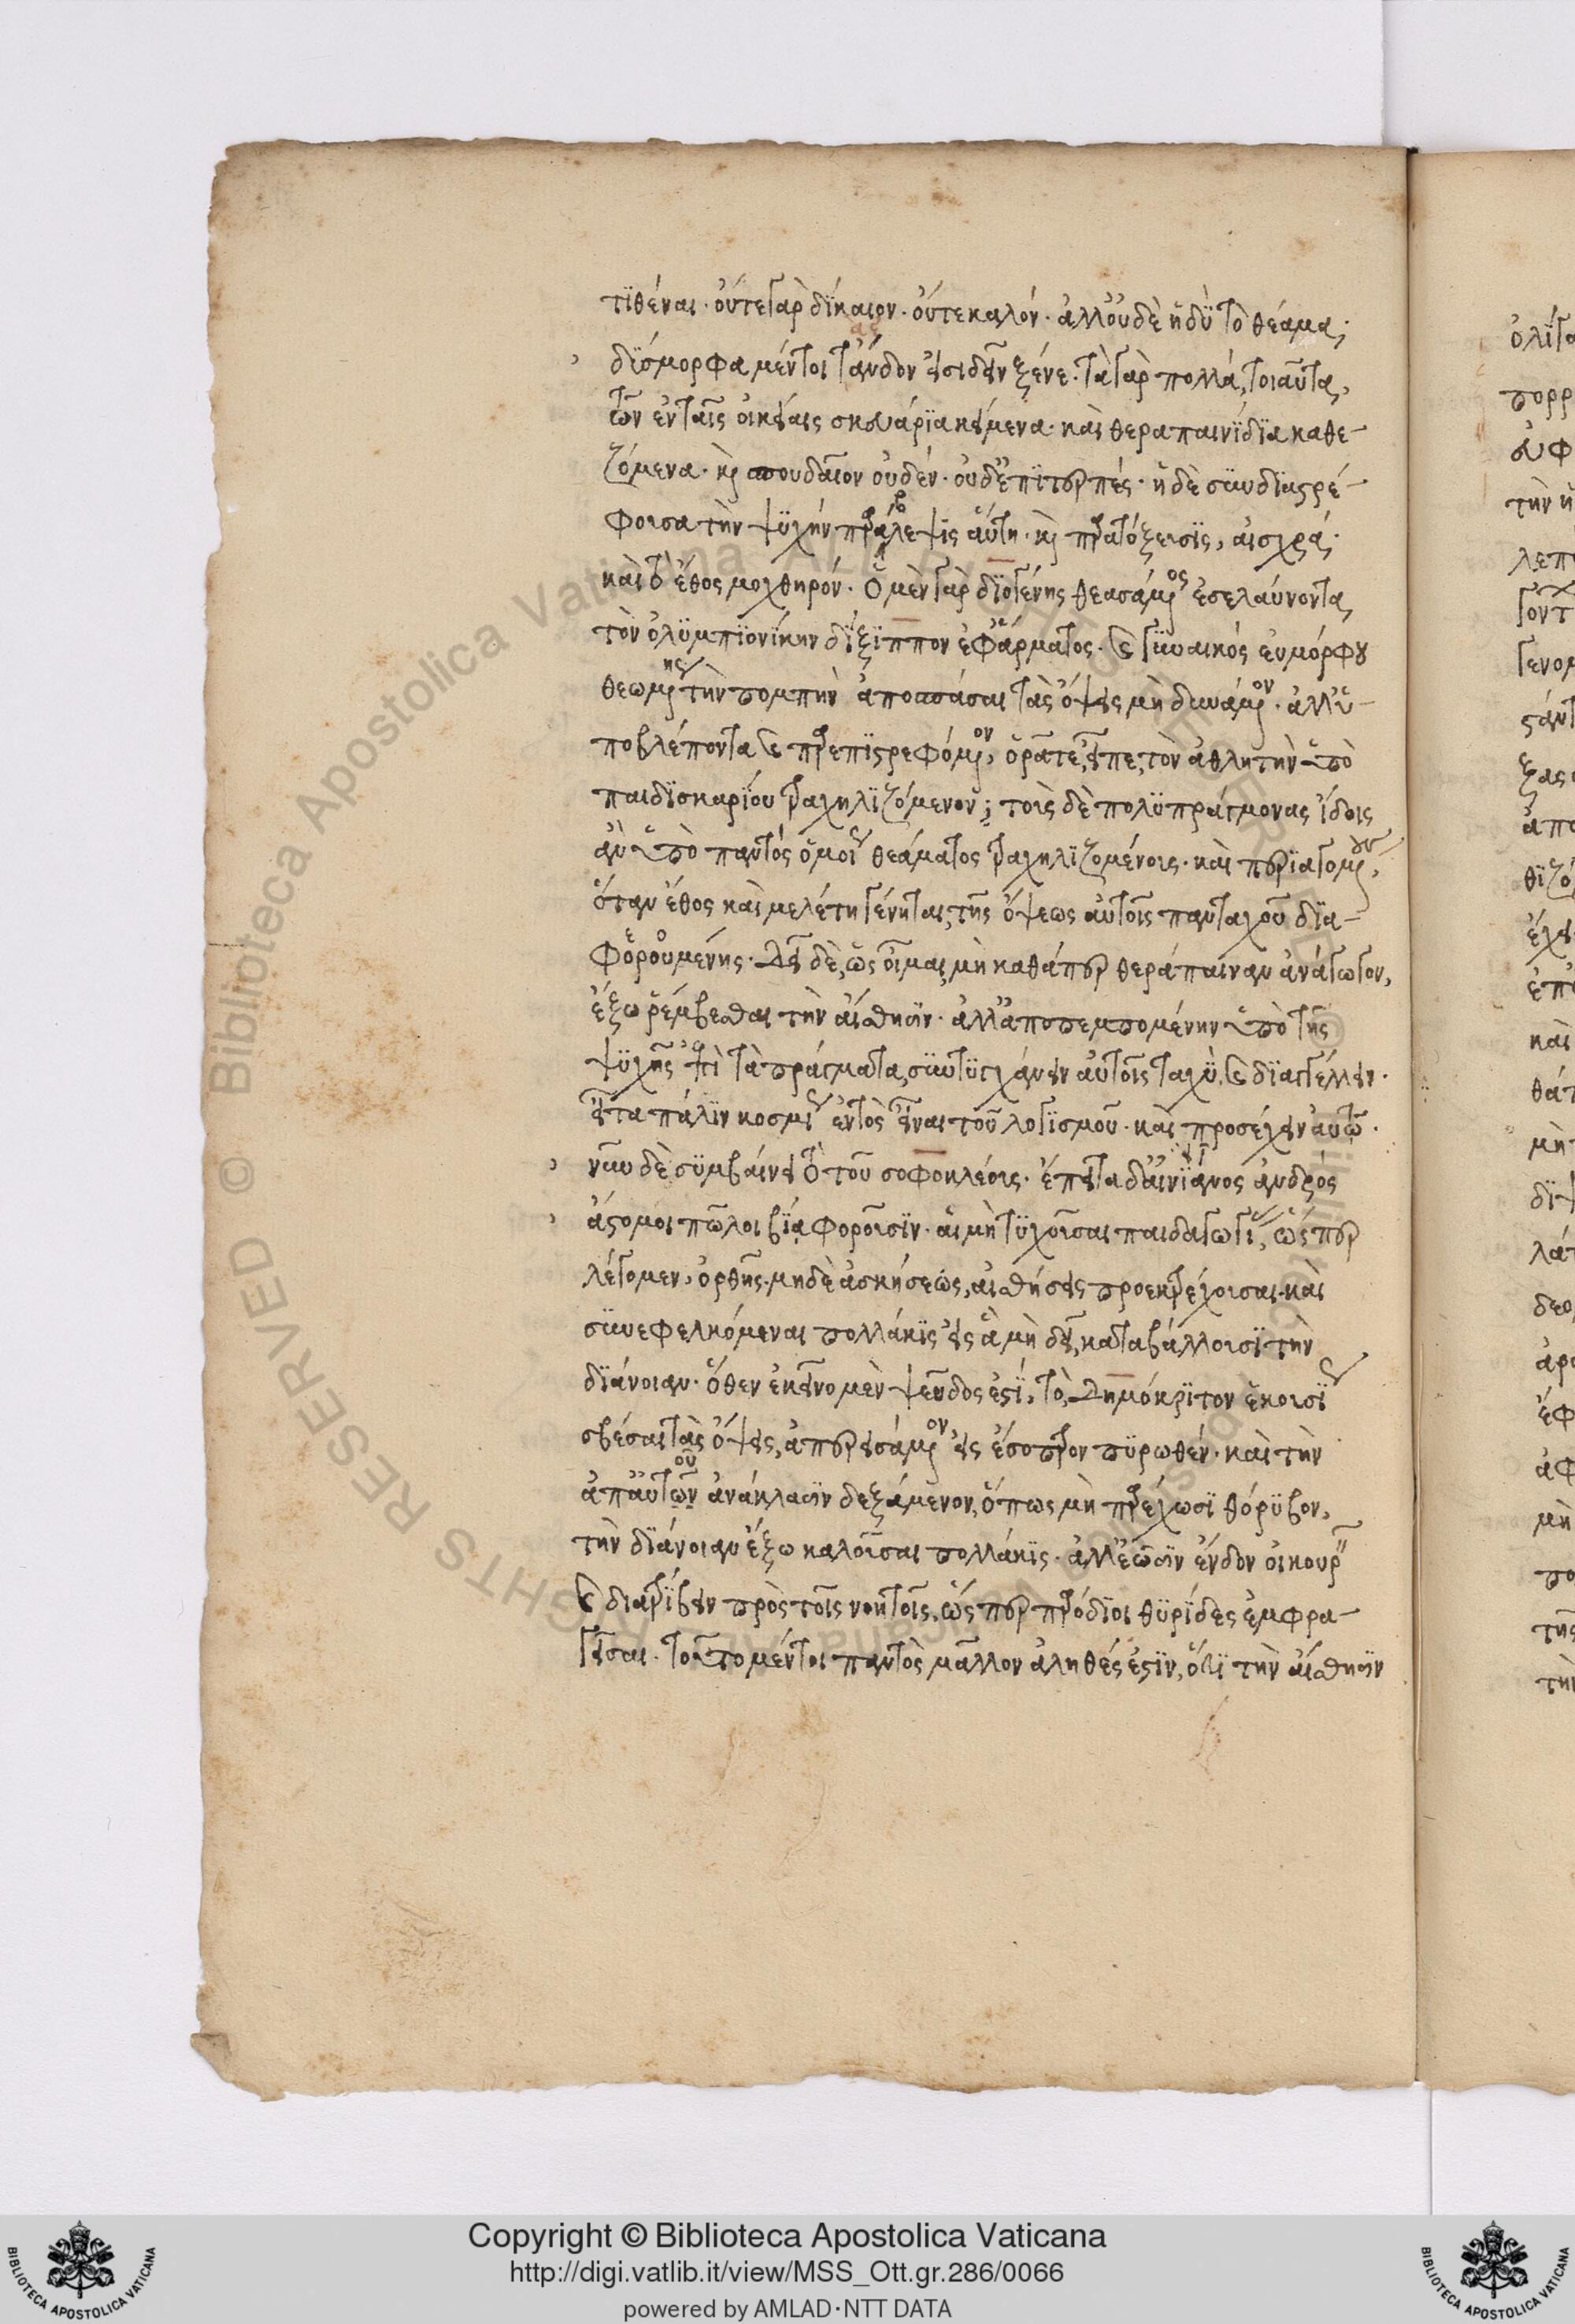 τϊθέναι· οὔτε γὰρ δίκαιον· οὔτε καλόν· ἀλλ' οὐδὲ ἡδὺ τὸ θέαμα·
δύσμορφα μέντοι τἄνδον εἰσιδεῖν ξένε· τὰ γὰρ πολλά, τοιαῦτα,
τῶν ἐν ταῖς οἰκείαις σκευάρια κείμενα· καὶ θεραπαινίδια καθε-
ζόμενα· καὶ σπουδαῖον οὐδέν· οὐδ' ἐπιτερπές· ἡ δὲ συνδιαστρέ-
φουσα τὴν ψυχήν παράβλεψις αὕτη· καὶ παρατόξευσις, αἰσχρά·
καὶ τὸ ἔθος μοχθηρόν· Ὁ μὲν γὰρ διογένης θεασάμενος εἰσελαύνοντα
τὸν ὀλυμπιονίκην διόξιππον ἐφ' ἅρματος· καὶ γυναικός εὐμόρφου
θεωμένης τὴν πομπὴν ἀποσπάσαι τὰς ὄψεις μὴ δυνάμενον· ἀλλ' ὑ-
ποβλέποντα καὶ παρεπιστρεφόμενον, ὁρᾶτε, εἶπε, τὸν ἀθλητὴν ὑπὸ
παιδισκαρίου τραχηλιζόμενον; τοὺς δὲ πολυπράγμονας ἴδοις
ἂν ὑπὸ παντός ὁμοίως θεάματος τραχηλιζομένους· καὶ περιαγομένους,
ὅταν ἔθος καὶ μελέτη γένηται, τῆς ὄψεως αὐτοῖς πανταχοῦ δια-
φορουμένης· Δεῖ δὲ, ὡς οἶμαι, μὴ καθάπερ θεράπαιναν ἀνάγωγον,
ἔξω ῥέμβεσθαι τὴν αἴσθησιν· ἀλλ' ἀποπεμπομένην ὑπὸ τῆς
ψυχῆς ἐπὶ τὰ πράγματα, συντυγχάνειν αὐτοῖς ταχὺ, καὶ διαγγέλλειν·
εἶτα πάλιν κοσμίως ἐντὸς εἶναι τοῦ λογισμοῦ· καὶ προσέχειν αὐτῷ·
νῦν δὲ συμβαίνει τὸ τοῦ σοφοκλέους· ἔπειτα δ' αἰνιᾶνος ἀνδρός
ἄστομοι πῶλοι βίᾳ φοροῦσιν· αἱ μὴ τυχοῦσαι παιδαγωγίας, ὥσπερ
λέγομεν, ὀρθῆς· μηδὲ ἀσκήσεώς, αἰσθήσεις προεκτρέχουσαι· καὶ
συνεφελκόμεναι πολλάκις εἰς ἃ μὴ δεῖ, καταβάλλουσι τὴν
διάνοιαν· ὅθεν ἐκεῖνο μὲν ψεῦδος ἐστί, τὸ, Δημόκριτον ἑκουσίως
σβέσαι τὰς ὄψεις, ἀπερεισάμενον εἰς ἔσοπτρον πυρωθέν· καὶ τὴν
ἀπ' αὐτοῦ ἀνάκλασιν δεξάμενον, ὅπως μὴ παρέχωσι θόρυβον,
τὴν διάνοιαν ἔξω καλοῦσαι πολλάκις· ἀλλ' ἐῶσιν ἔνδον οἰκουρεῖν
καὶ διατρίβειν πρὸς τοῖς νοητοῖς, ὥσπερ παρόδιοι θυρίδες ἐμφρα-
γεῖσαι· τοῦτο μέντοι παντὸς μᾶλλον ἀληθές ἐστιν, ὅτι τὴν αἴσθησιν
Copyright © Biblioteca Apostolica Vaticana
http://digi.vatlib.it/view/MSS_Ott.gr.286/0066
powered by AMLAD·NTT DATA